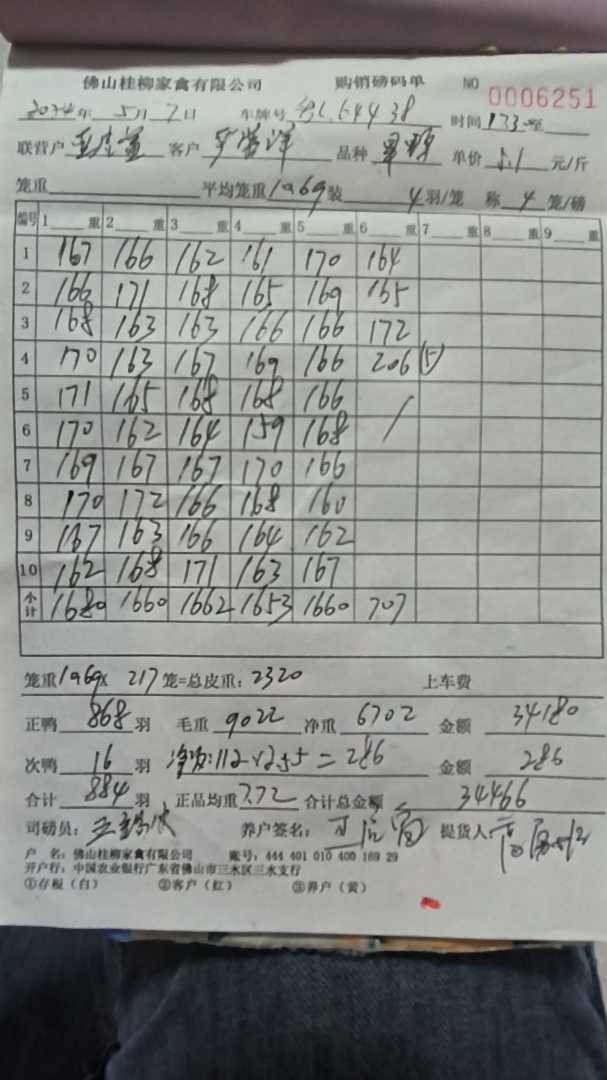 佛山桂柳家禽有限公司 购销磅码单 NO 0006251
年 5月7日 车牌号 64438 时间
联营户 客户 品种 单价 5.1 元/斤
笼重 平均笼重 装 4 羽/笼 称 4 笼/磅
编号 1 重 2 重 3 重 4 重 5 重 6 重 7 重 8 重 9 重
1 167 166 162 161 170 164
2 166 171 168 165 169 165
3 168 163 163 166 166 172
4 170 163 167 169 166 206 (5)
5 171 165 168 168 166
6 170 162 164 159 168 /
7 169 167 167 170 166
8 170 172 166 168 160
9 167 163 166 164 162
10 162 168 171 163 167
小计 1680 1660 1662 1653 1660 707
笼重 1069 x 217 笼=总皮重: 2320 上车费
正鸭 868 羽 毛重 9022 净重 6702 金额 34180
次鸭 16 羽 净次: 112 x 255 = 286 金额 286
合计 884 羽 正品均重 7.72 合计总金额 34466
司磅员: 养户签名: 提货人:
户 名: 佛山桂柳家禽有限公司 账号: 444 401 010 400 169 29
开户行: 中国农业银行广东省佛山市三水区三水支行
①存根（白） ②客户（红） ③养户（黄）